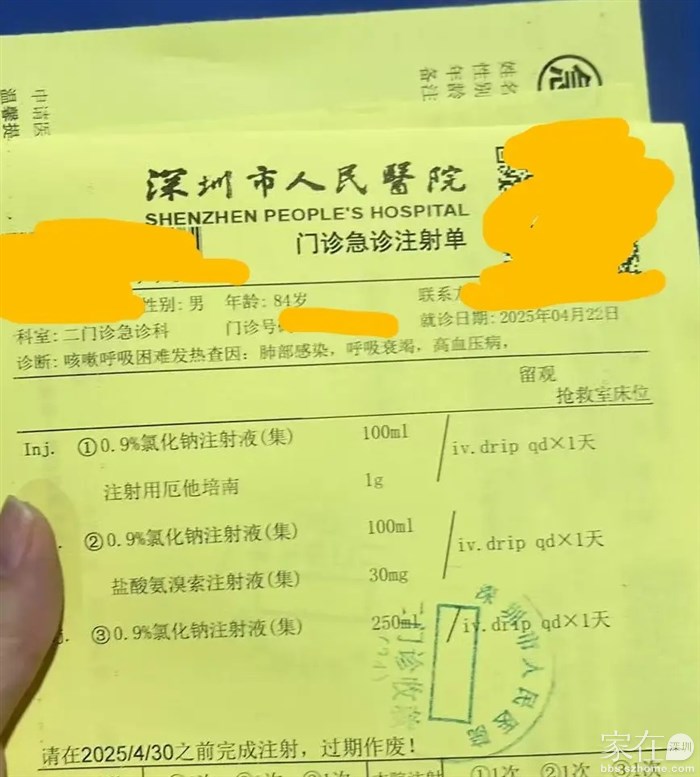 姓名
性别
年龄
备注
急
申请医
深圳市人民醫院
SHENZHEN PEOPLE'S HOSPITAL
门诊急诊注射单
性别: 男 年龄: 84岁 联系方
科室: 二门诊急诊科 门诊号 就诊日期: 2025年04月22日
诊断: 咳嗽呼吸困难发热查因: 肺部感染, 呼吸衰竭, 高血压病,
留观
抢救室床位
Inj. ①0.9%氯化钠注射液(集) 100ml iv.drip qd×1天
注射用厄他培南 1g
②0.9%氯化钠注射液(集) 100ml iv.drip qd×1天
盐酸氨溴索注射液(集) 30mg
③0.9%氯化钠注射液(集) 250ml iv.drip qd×1天
深圳市人民医院
二门诊收款
请在2025/4/30之前完成注射, 过期作废!
①1次 ②1次
家在深圳
bbs.szhome.com